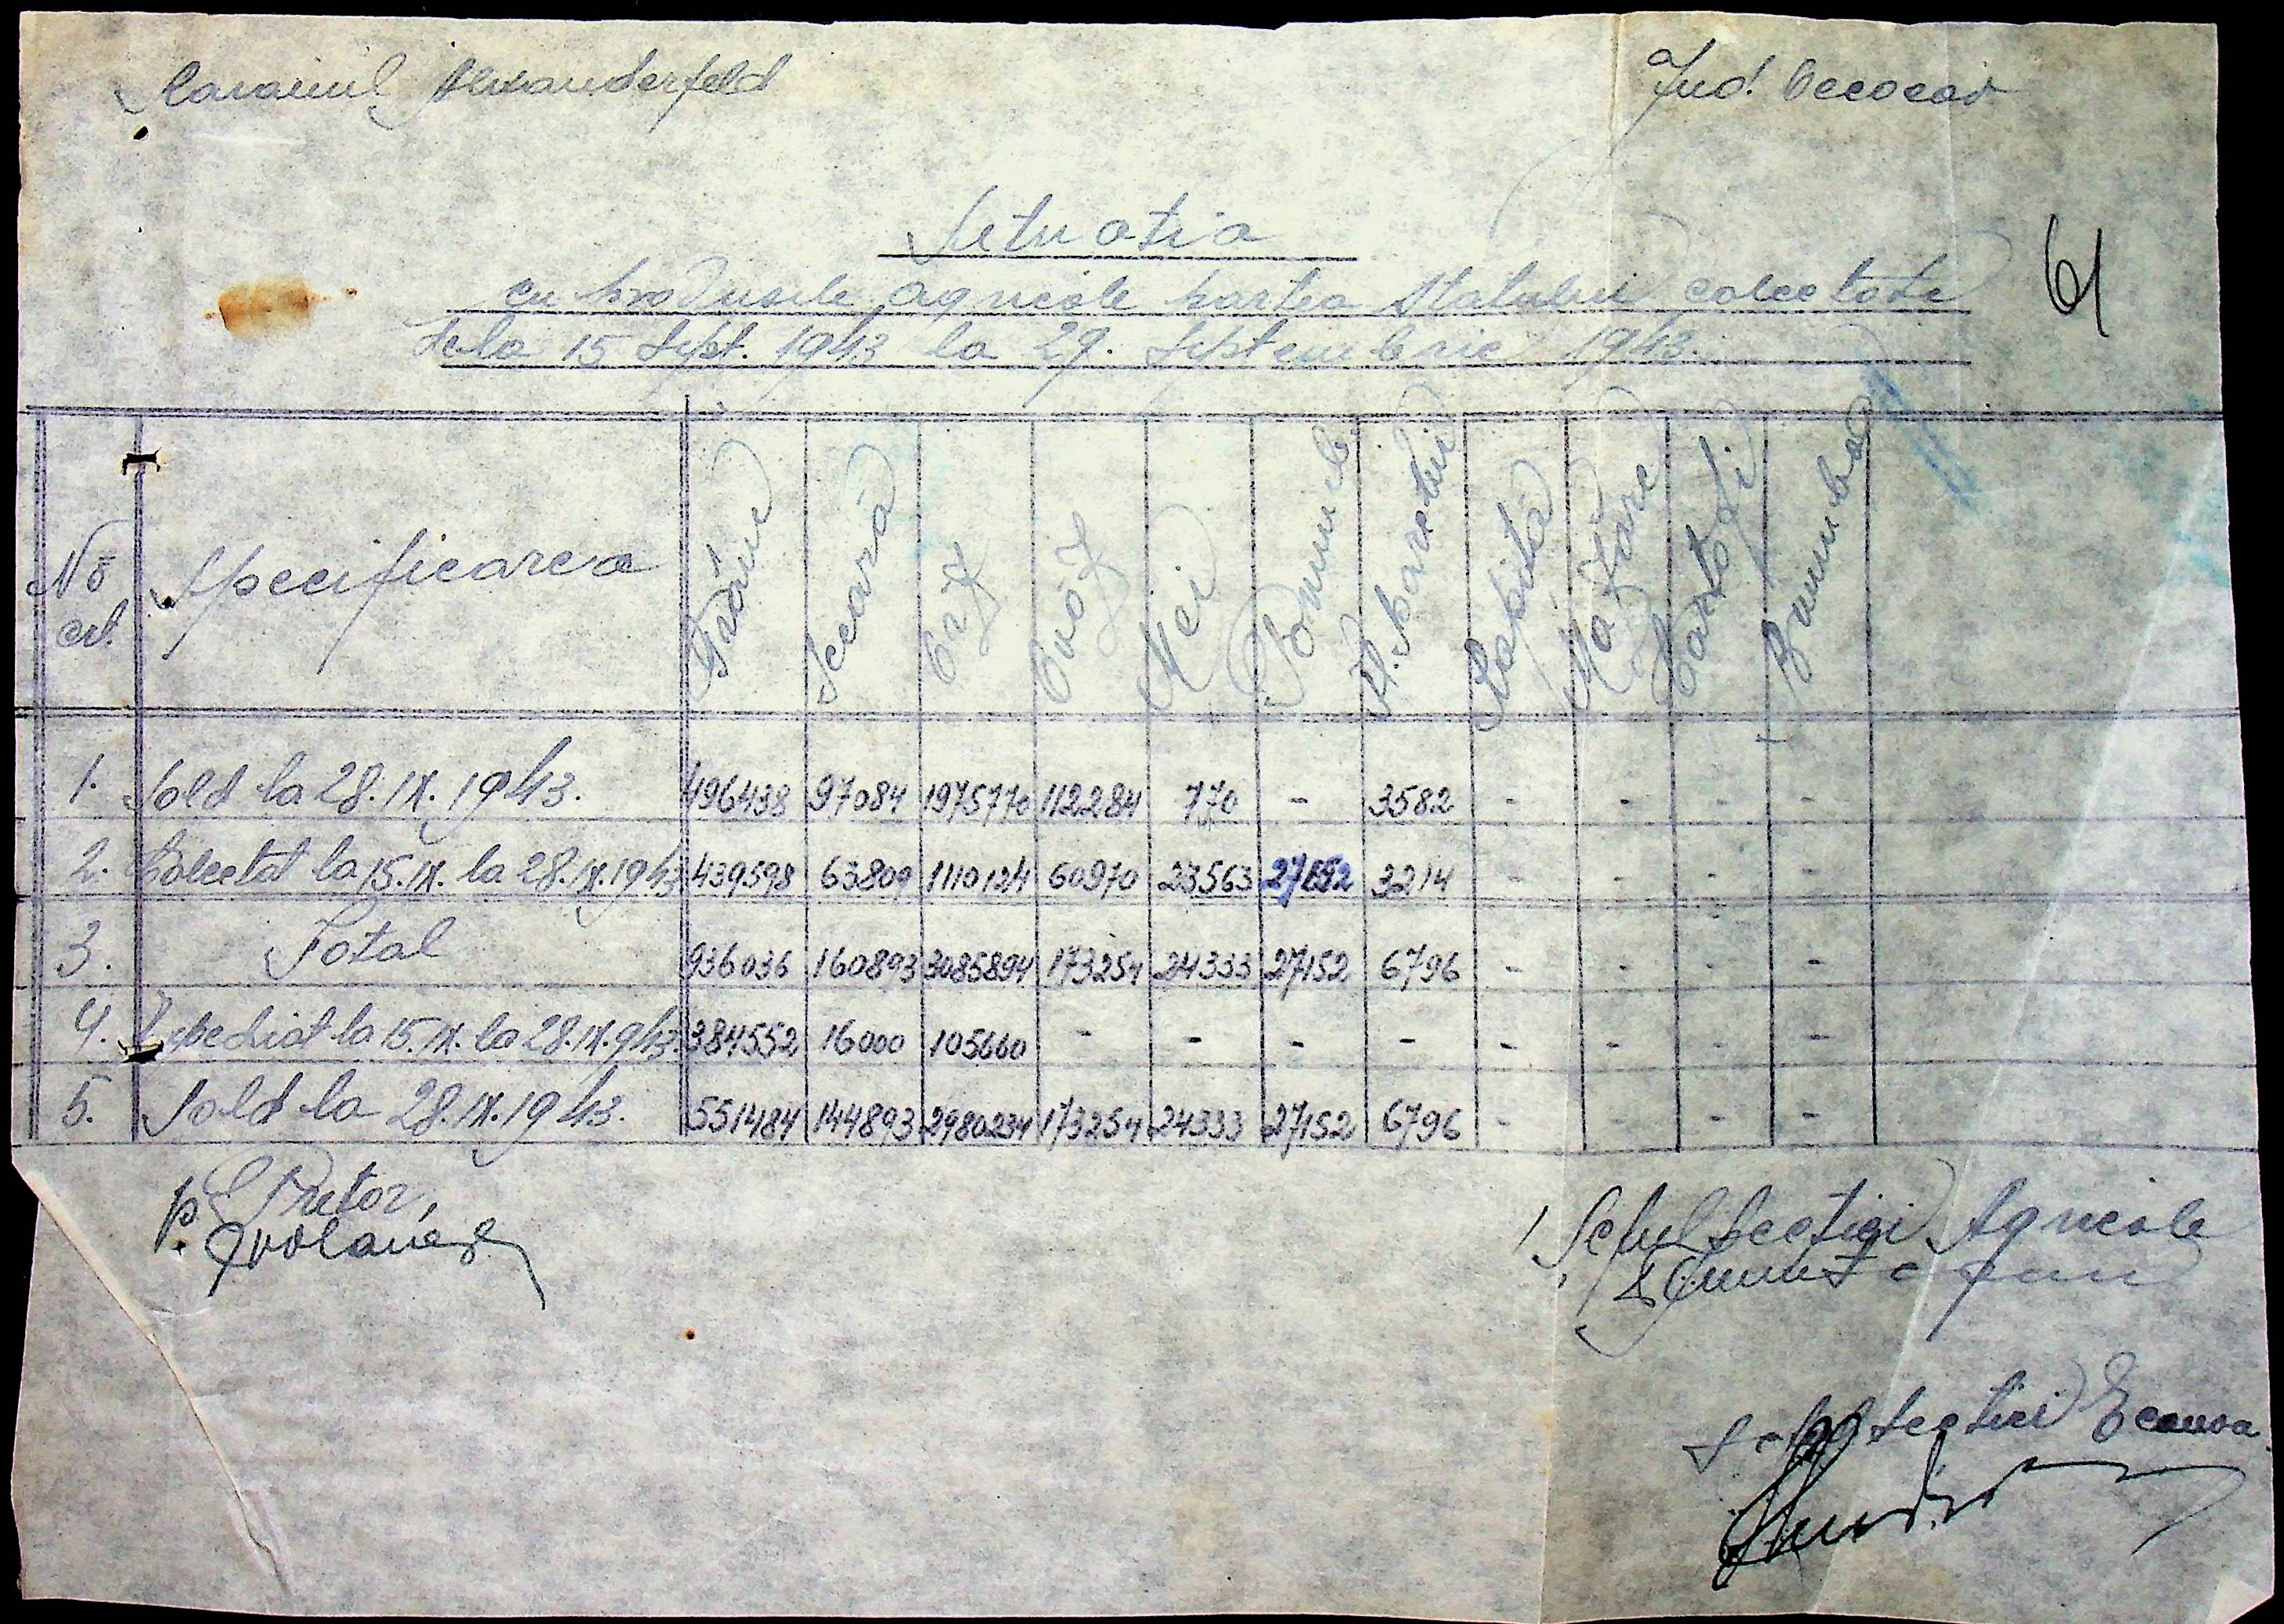 Raionul Alexanderfeld
Jud. Oceacov
61
Situatia
cu produsele agricole partea Statului colectate
dela 15 Sept. 1943 la 29. Septembrie 1943.
No crt. Specificarea Grâu Secară Orz Ovăz Mei Porumb Fl. Soarelui Rapită Mazăre Cartofi Bumbac
1. Sold la 28.IX.1943. 496438 97084 1975770 112284 770 - 3582 - - - -
2. Colectat la 15.IX. la 28.IX.1943 439598 63809 1110124 60970 23563 27152 3214 - - - -
3. Total 936036 160893 3085894 173254 24333 27152 6796 - - - -
4. Expediat la 15.IX. la 28.IX.943. 384552 16000 105660 - - - - - - - -
5. Sold la 28.IX.1943. 551484 144893 2980234 173254 24333 27152 6796 - - - -
p. Pretor,
Seful Sectiei Agricole
Seful Sectiei Econom